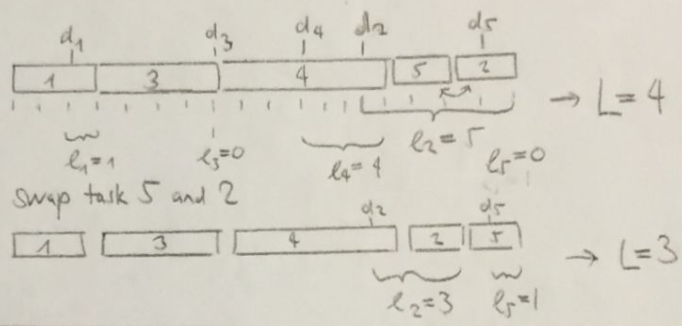 d₁ d₃ d₄ d₂ d₅
1 3 4 5 2 → L=4
l₁=1 l₃=0 l₄=4 l₂=5 l₅=0
swap task 5 and 2
d₂ d₅
1 3 4 2 5 → L=3
l₂=3 l₅=1